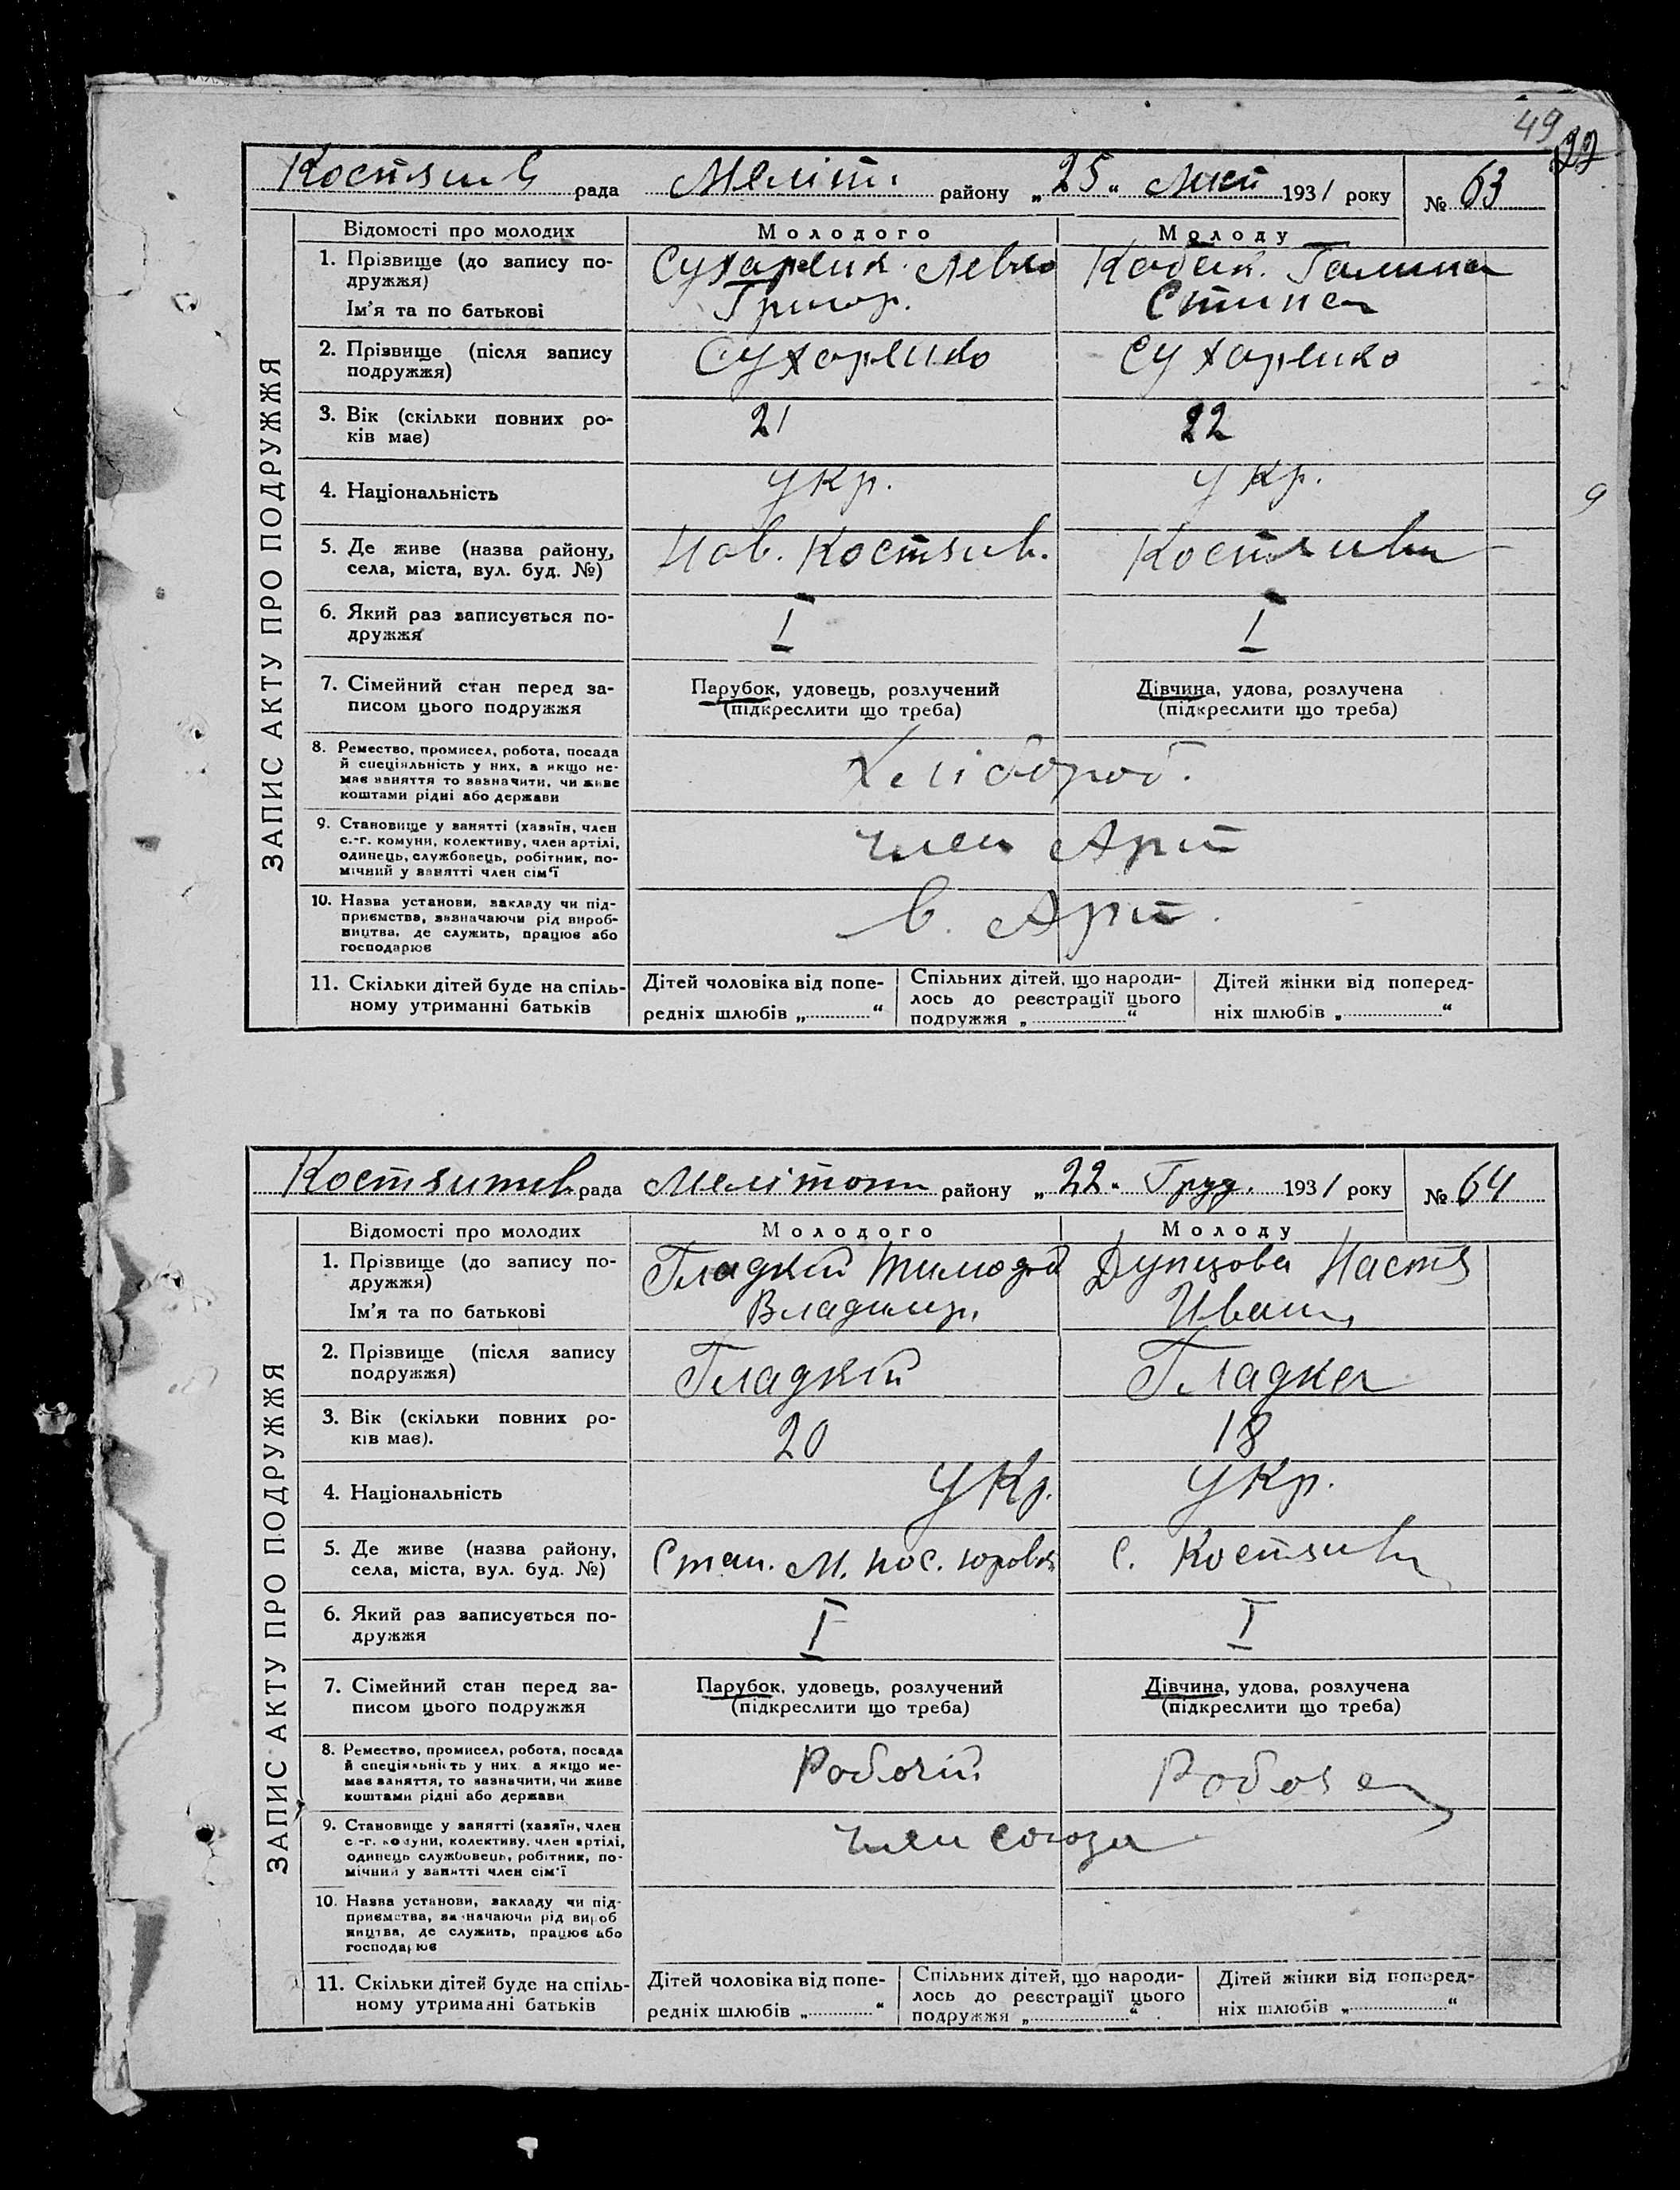 49
22
Костянів рада Меліт. району „25“ Лист 1931 року № 63
ЗАПИС АКТУ ПРО ПОДРУЖЖЯ
Відомості про молодих Молодого Молоду
1. Прізвище (до запису по-
дружжя)
Ім'я та по батькові
Сухаренк. Левко
Григор.
Кобак. Галина
Степан
2. Прізвище (після запису
подружжя)
Сухаренко Сухаренко
3. Вік (скільки повних ро-
ків має)
21 22
4. Національність укр. укр.
5. Де живе (назва району,
села, міста, вул. буд. №)
Нов. Костянів.
6. Який раз записується по-
дружжя
I I
7. Сімейний стан перед за-
писом цього подружжя
Парубок, удовець, розлучений
(підкреслити що треба)
Дівчина, удова, розлучена
(підкреслити що треба)
8. Ремество, промисел, робота, посада
й спеціяльність у них, а якщо не-
має заняття то зазначити, чи живе
коштами рідні або держави
Хлібороб.
9. Становище у занятті (хазяїн, член
с.-г. комуни, колективу, член артілі,
одинець, службовець, робітник, по-
мічний у занятті член сім'ї
член Арт
10. Назва установи, закладу чи під-
приємства, зазначаючи рід вироб-
ництва, де служить, працює або
господарює
в. Арт.
11. Скільки дітей буде на спіль-
ному утриманні батьків
Дітей чоловіка від попе-
редніх шлюбів „ “
Спільних дітей, що народи-
лось до реєстрації цього
подружжя „ “
Дітей жінки від поперед-
ніх шлюбів „ “
9
рада Мелітоп району „22“ Груд. 1931 року № 64
ЗАПИС АКТУ ПРО ПОДРУЖЖЯ
Відомості про молодих Молодого Молоду
1. Прізвище (до запису по-
дружжя)
Ім'я та по батькові
Гладкій Тимофей
Владимир.
Настя
Иван.
2. Прізвище (після запису
подружжя)
Гладкій Гладка
3. Вік (скільки повних ро-
ків має).
20 18
4. Національність Укр. Укр.
5. Де живе (назва району,
села, міста, вул. буд. №)
Стан. М. с.
6. Який раз записується по-
дружжя
I I
7. Сімейний стан перед за-
писом цього подружжя
Парубок, удовець, розлучений
(підкреслити що треба)
Дівчина, удова, розлучена
(підкреслити що треба)
8. Ремество, промисел, робота, посада
й спеціяльність у них, а якщо не-
має заняття, то зазначити, чи живе
коштами рідні або держави
Робочій Робоча
9. Становище у занятті (хазяїн, член
с.-г. комуни, колективу, член артілі,
одинець службовець, робітник, по-
мічний у занятті член сім'ї
член союза
10. Назва установи, закладу чи під-
приємства, зазначаючи рід вироб
ництва, де служить, працює або
господарює
11. Скільки дітей буде на спіль-
ному утриманні батьків
Дітей чоловіка від попе-
редніх шлюбів „ “
Спільних дітей, що народи-
лось до реєстрації цього
подружжя „ “
Дітей жінки від поперед-
ніх шлюбів „ “